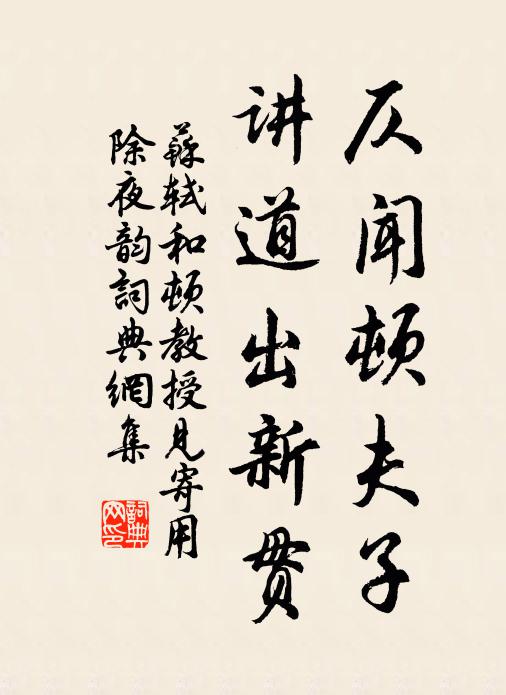 仄闻顿夫子
讲道出新贯
蘇軾和顿教授见寄用
除夜韵詞典網集
詞典
网印